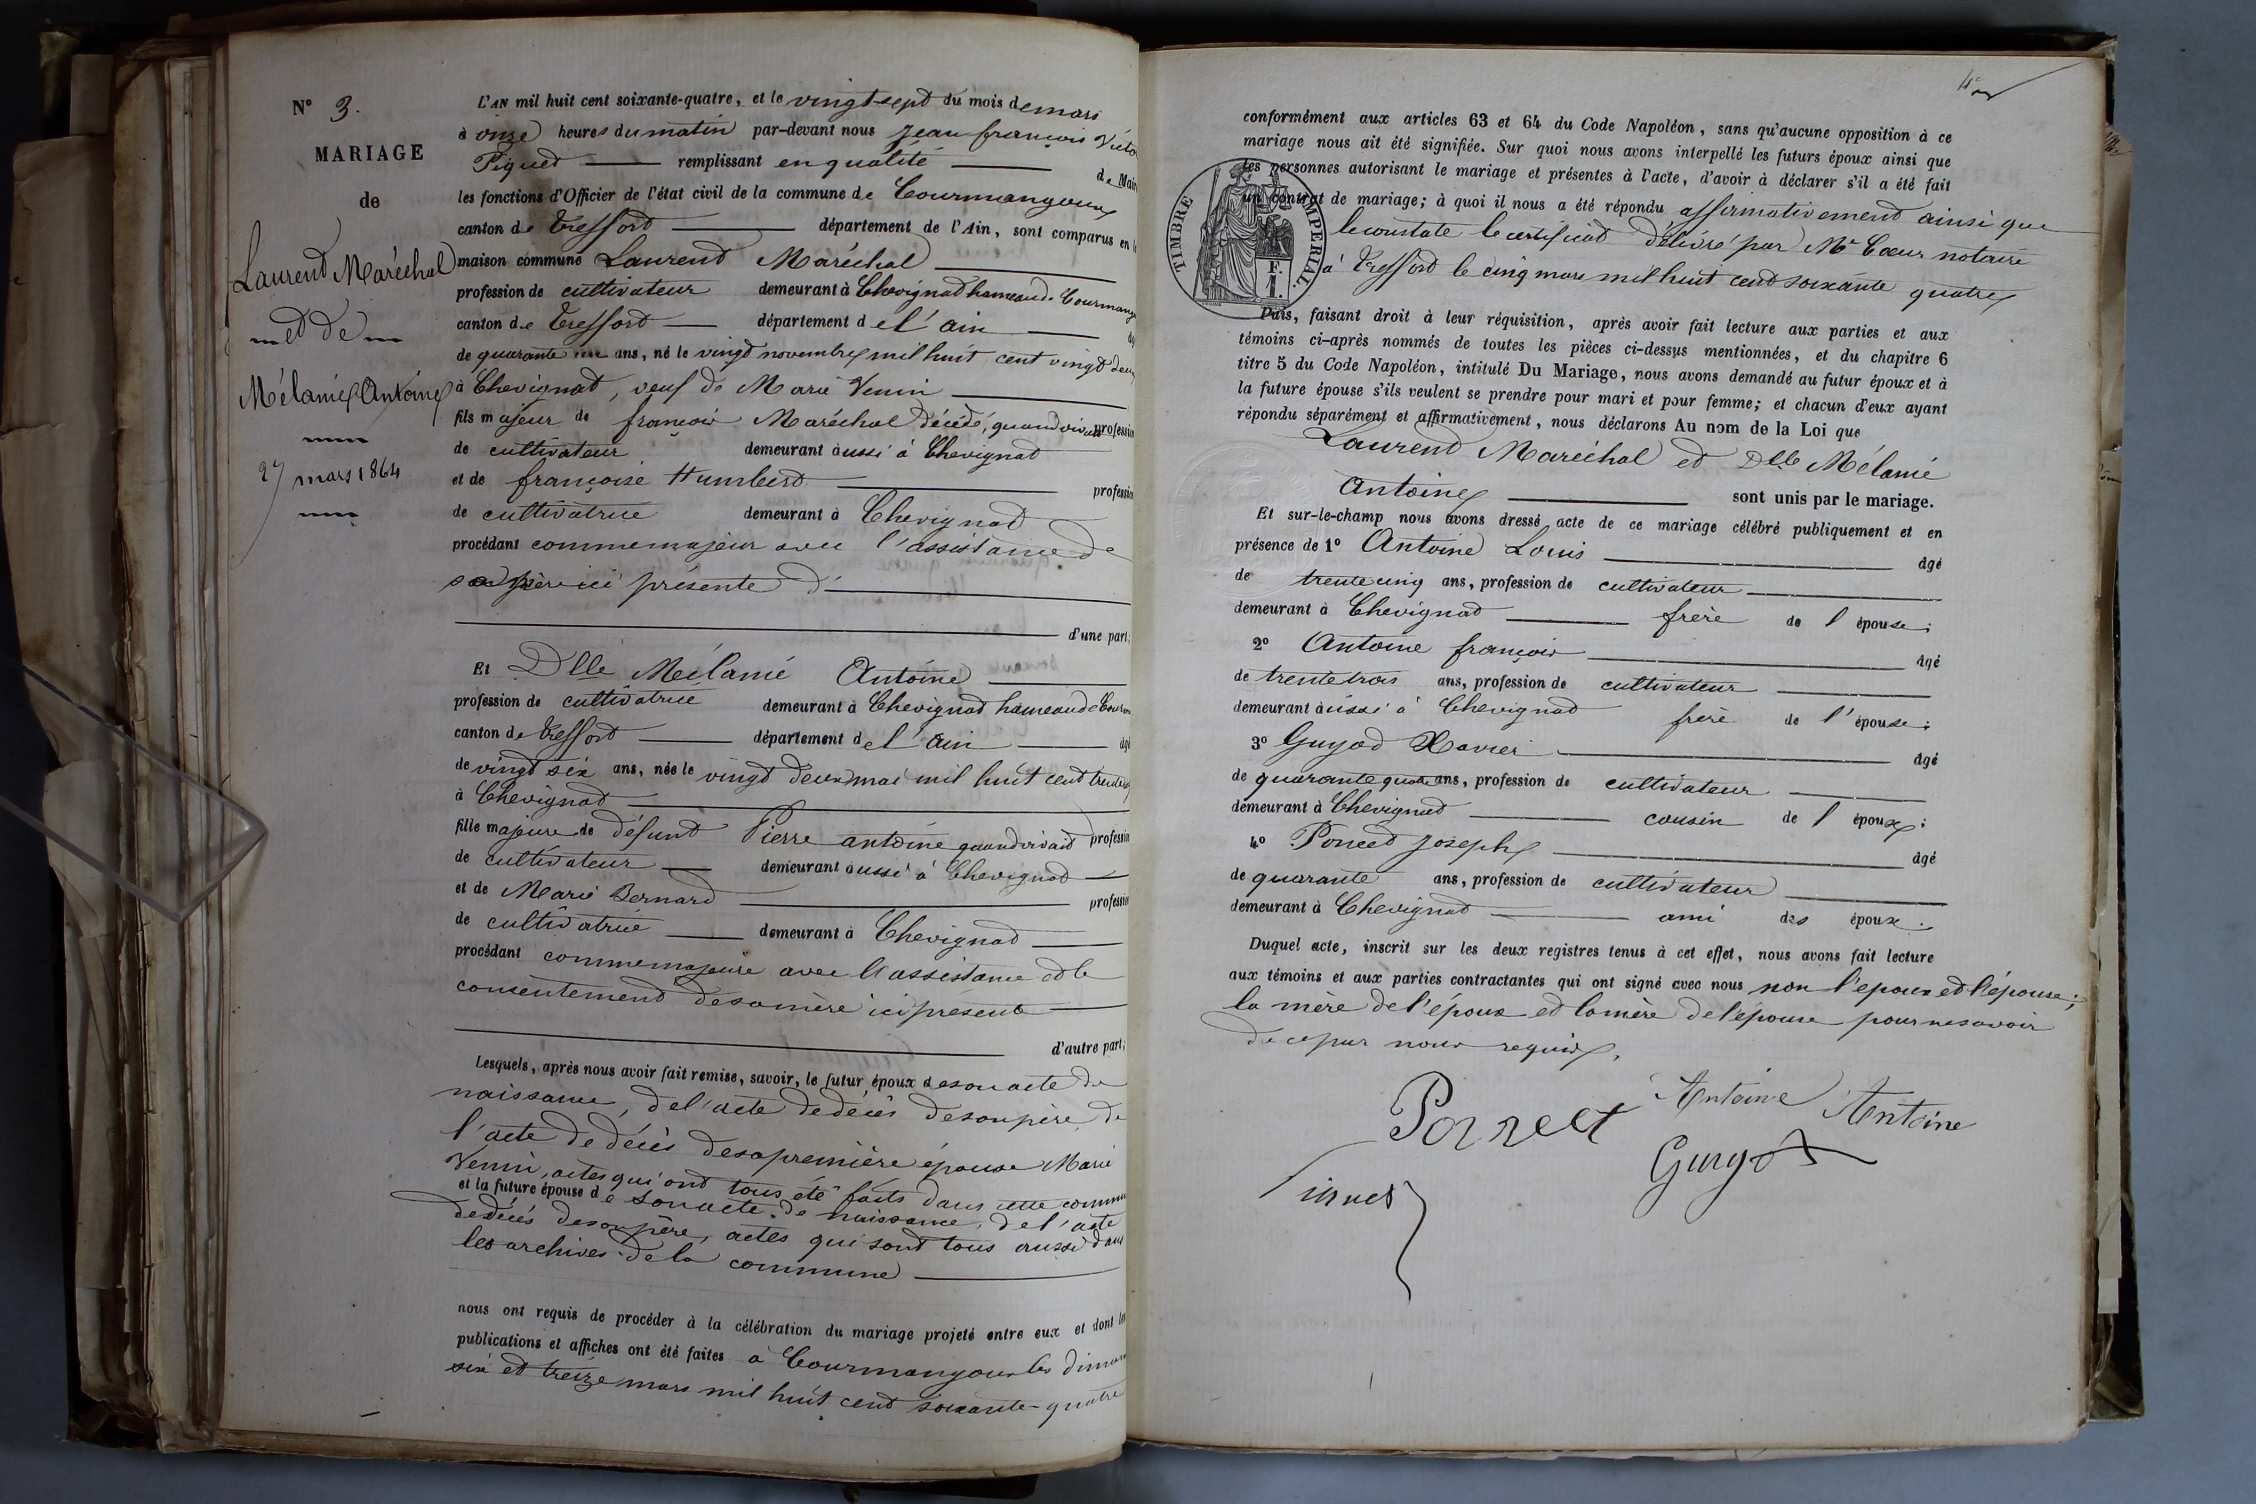 N° 3.
MARIAGE
de
Laurent Maréchal
et de
Mélanie Antoine
27 mars 1864
L'AN mil huit cent soixante-quatre, et le vingt sept du mois de mars
à onze heures du matin par-devant nous Jean françois Victo
Piquet remplissant en qualité de Mair
les fonctions d'Officier de l'état civil de la commune de Courmangoux
canton de Treffort département de l'Ain, sont comparus en l
maison commune Laurent Maréchal
profession de cultivateur demeurant à Chevignat hameau de Courmang
canton de Treffort département de l'ain
de quarante un ans, né le vingt novembre mil huit cent vingt deux
à Chevignat, veuf de Marie Venin
fils majeur de françois Maréchal décédé, quand vivait profession
de cultivateur demeurant aussi à Chevignat
et de françoise Humbert profession
de cultivatrice demeurant à Chevignat
procédant comme majeur avec l'assistance de
sa mère ici présente d'
d'une part;
Et Dlle Mélanie Antoine
profession de cultivatrice demeurant à Chevignat hameau de Cour
canton de Treffort département de l'ain âgé
de vingt six ans, née le vingt deux mai mil huit cent trente
à Chevignat
fille majeure de défunt Pierre antoine quand vivait profession
de cultivateur demeurant aussi à Chevignat
et de Marie Bernard profession
de cultivatrice demeurant à Chevignat
procédant comme majeure avec l'assistance et le
consentement de sa mère ici présente
d'autre part;
Lesquels, après nous avoir fait remise, savoir, le futur époux de son acte de
naissance, de l'acte de décès de son père de
l'acte de décès de sa première épouse Marie
Venin, actes qui ont tous été faits dans cette commu
et la future épouse de son acte de naissance, de l'acte
de décès de son père, actes qui sont tous aussi dans
les archives de la commune
nous ont requis de procéder à la célébration du mariage projeté entre eux et dont les
publications et affiches ont été faites à Courmangoux les diman
six et treize mars mil huit cent soixante-quatre
conformément aux articles 63 et 64 du Code Napoléon, sans qu'aucune opposition à ce
mariage nous ait été signifiée. Sur quoi nous avons interpellé les futurs époux ainsi que
les personnes autorisant le mariage et présentes à l'acte, d'avoir à déclarer s'il a été fait
un contrat de mariage; à quoi il nous a été répondu affirmativement ainsi que
le constate le certificat délivré par Me Cœur notaire
à Treffort le cinq mars mil huit cent soixante quatre
TIMBRE IMPERIAL
F.
1.
Puis, faisant droit à leur réquisition, après avoir fait lecture aux parties et aux
témoins ci-après nommés de toutes les pièces ci-dessus mentionnées, et du chapitre 6
titre 5 du Code Napoléon, intitulé Du Mariage, nous avons demandé au futur époux et à
la future épouse s'ils veulent se prendre pour mari et pour femme; et chacun d'eux ayant
répondu séparément et affirmativement, nous déclarons Au nom de la Loi que
Laurent Maréchal et Dlle Mélanie
Antoine sont unis par le mariage.
Et sur-le-champ nous avons dressé acte de ce mariage célébré publiquement et en
présence de 1° Antoine Louis âgé
de trente cinq ans, profession de cultivateur
demeurant à Chevignat frère de l'épouse;
2° Antoine françois âgé
de trente trois ans, profession de cultivateur
demeurant aussi à Chevignat frère de l'épouse;
3° Guyot Xavier âgé
de quarante quatre ans, profession de cultivateur
demeurant à Chevignat cousin de l'époux;
4° Poncet Joseph âgé
de quarante ans, profession de cultivateur
demeurant à Chevignat ami des époux.
Duquel acte, inscrit sur les deux registres tenus à cet effet, nous avons fait lecture
aux témoins et aux parties contractantes qui ont signé avec nous non l'époux et l'épouse;
la mère de l'époux et la mère de l'épouse pour ne savoir
de ce par nous requis.
Antoine Antoine
Poncet
Guyot
Piquet